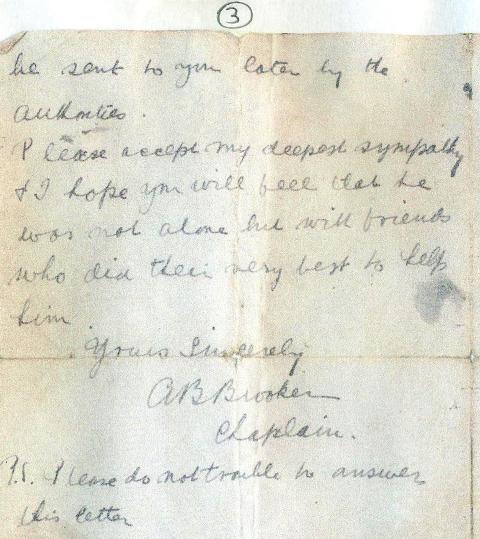 3
be sent to you later by the
authorities.
Please accept my deepest sympathy
& I hope you will feel that he
was not alone but with friends
who did their very best to help
him
Yours Sincerely
A B Brooker
Chaplain.
P.S. Please do not trouble to answer
this letter